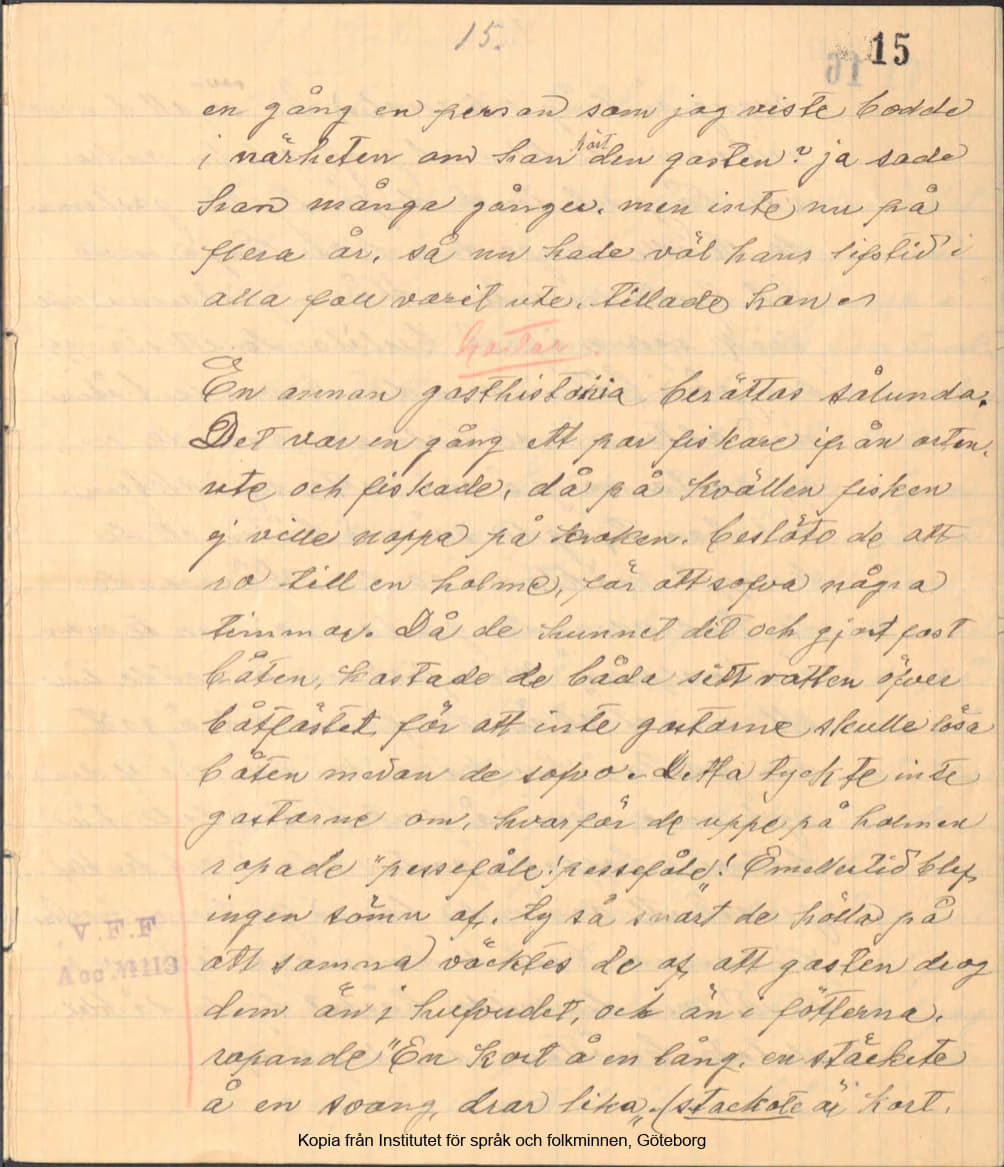 15.
15
en gång en person som jag viste bodde
i närheten om han hört den gasten? ja sade
han många gånger. men inte nu på
flera år, så nu hade väl hans lifstid i
alla fall varit ute. tillade han
Gastar.
En annan gasthistoria berättas sålunda.
Det var en gång ett par fiskare ifrån orten.
ute och fiskade, då på kvällen fisken
ej ville nappa på kroken. beslöto de att
ro till en holme, för att sofva några
timmar. Då de hunnit dit och gjort fast
båten, kastade de båda sitt vatten öfver
båtfästet för att inte gastarne skulle lösa
båten medan de sofvo. Detta tyckte inte
gastarne om, hvarför de uppe på holmen
ropade "pessefåle! pessefåle"! Emellertid blef
ingen sömn af, ty så snart de höllo på
att somna väcktes de af att gasten drog
dem än i hufvudet, och än i fötterna.
ropande "En kort å en lång, en stäckete
å en svang, drar lika". (stackote är kort.
V.F.F
Acc No 113
Kopia från Institutet för språk och folkminnen, Göteborg